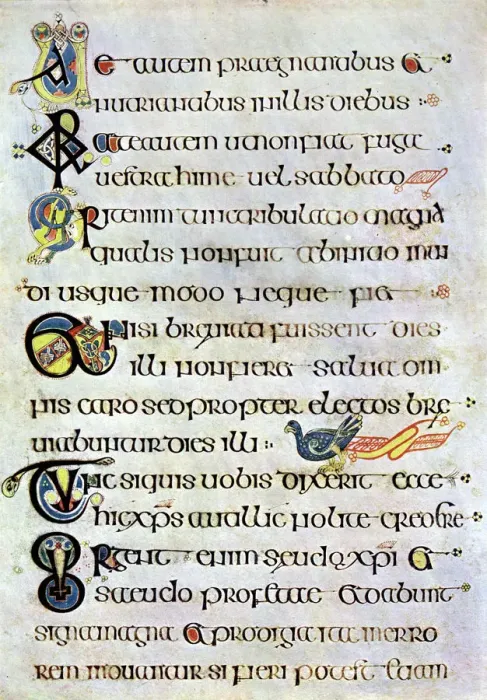 Uae autem praegnantibus et
nutrientibus in illis diebus
Orate autem ut non fiat fuga
uestra hime uel sabbato
Erit enim tunc tribulatio magna
qualis non fuit ab initio mun
di usque modo neque fiet
Et nisi breuiati fuissent dies
illi non fieret salua om
nis caro sed propter electos bre
uiabuntur dies illi
Tunc siquis uobis dixerit ecce
hic xps aut illic nolite credere
Surgent enim seudoxpi et
seudo profetae et dabunt
signa magna et prodigia ita in erro
rem moueantur si fieri potest etiam